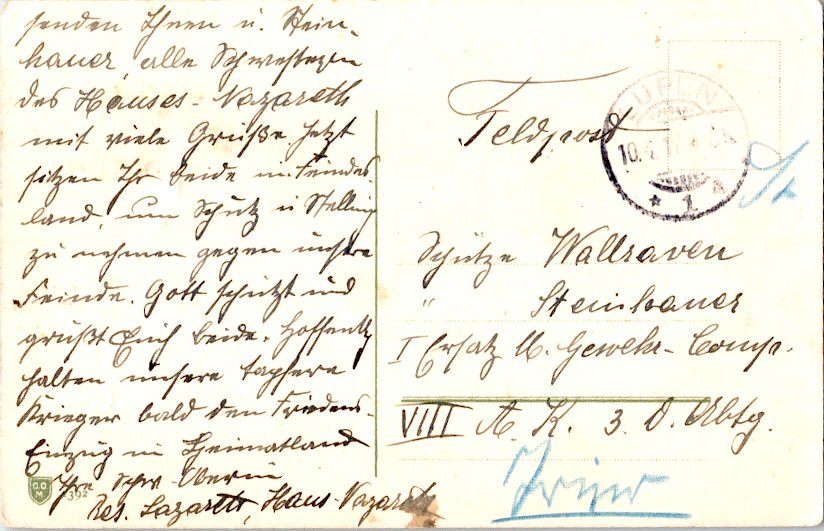 senden Ihnen u. Stein-
hauer, alle Schwestern
des Hauses-Nazareth
mit viele Grüße. Jetzt
sitzen Ihr beide in Feindes-
land, um Schutz u Stellung
zu nehmen gegen unsere
Feinde. Gott schützt und
grüßt Euch beide. Hoffentlg
halten unsere tapfere
Krieger bald den Friedens-
Einzug in Heimatland
Ihre Schw. Oberin
Res. Lazareth, Haus-Nazareth
G.O.M
392
Feldpost
EUPEN
10.4.17
* 1 a
Schütze Wallraven
" Steinhauer
I Ersatz M. Gewehr-Comp.
VIII A. K. 3. D. Abtg.
Trier